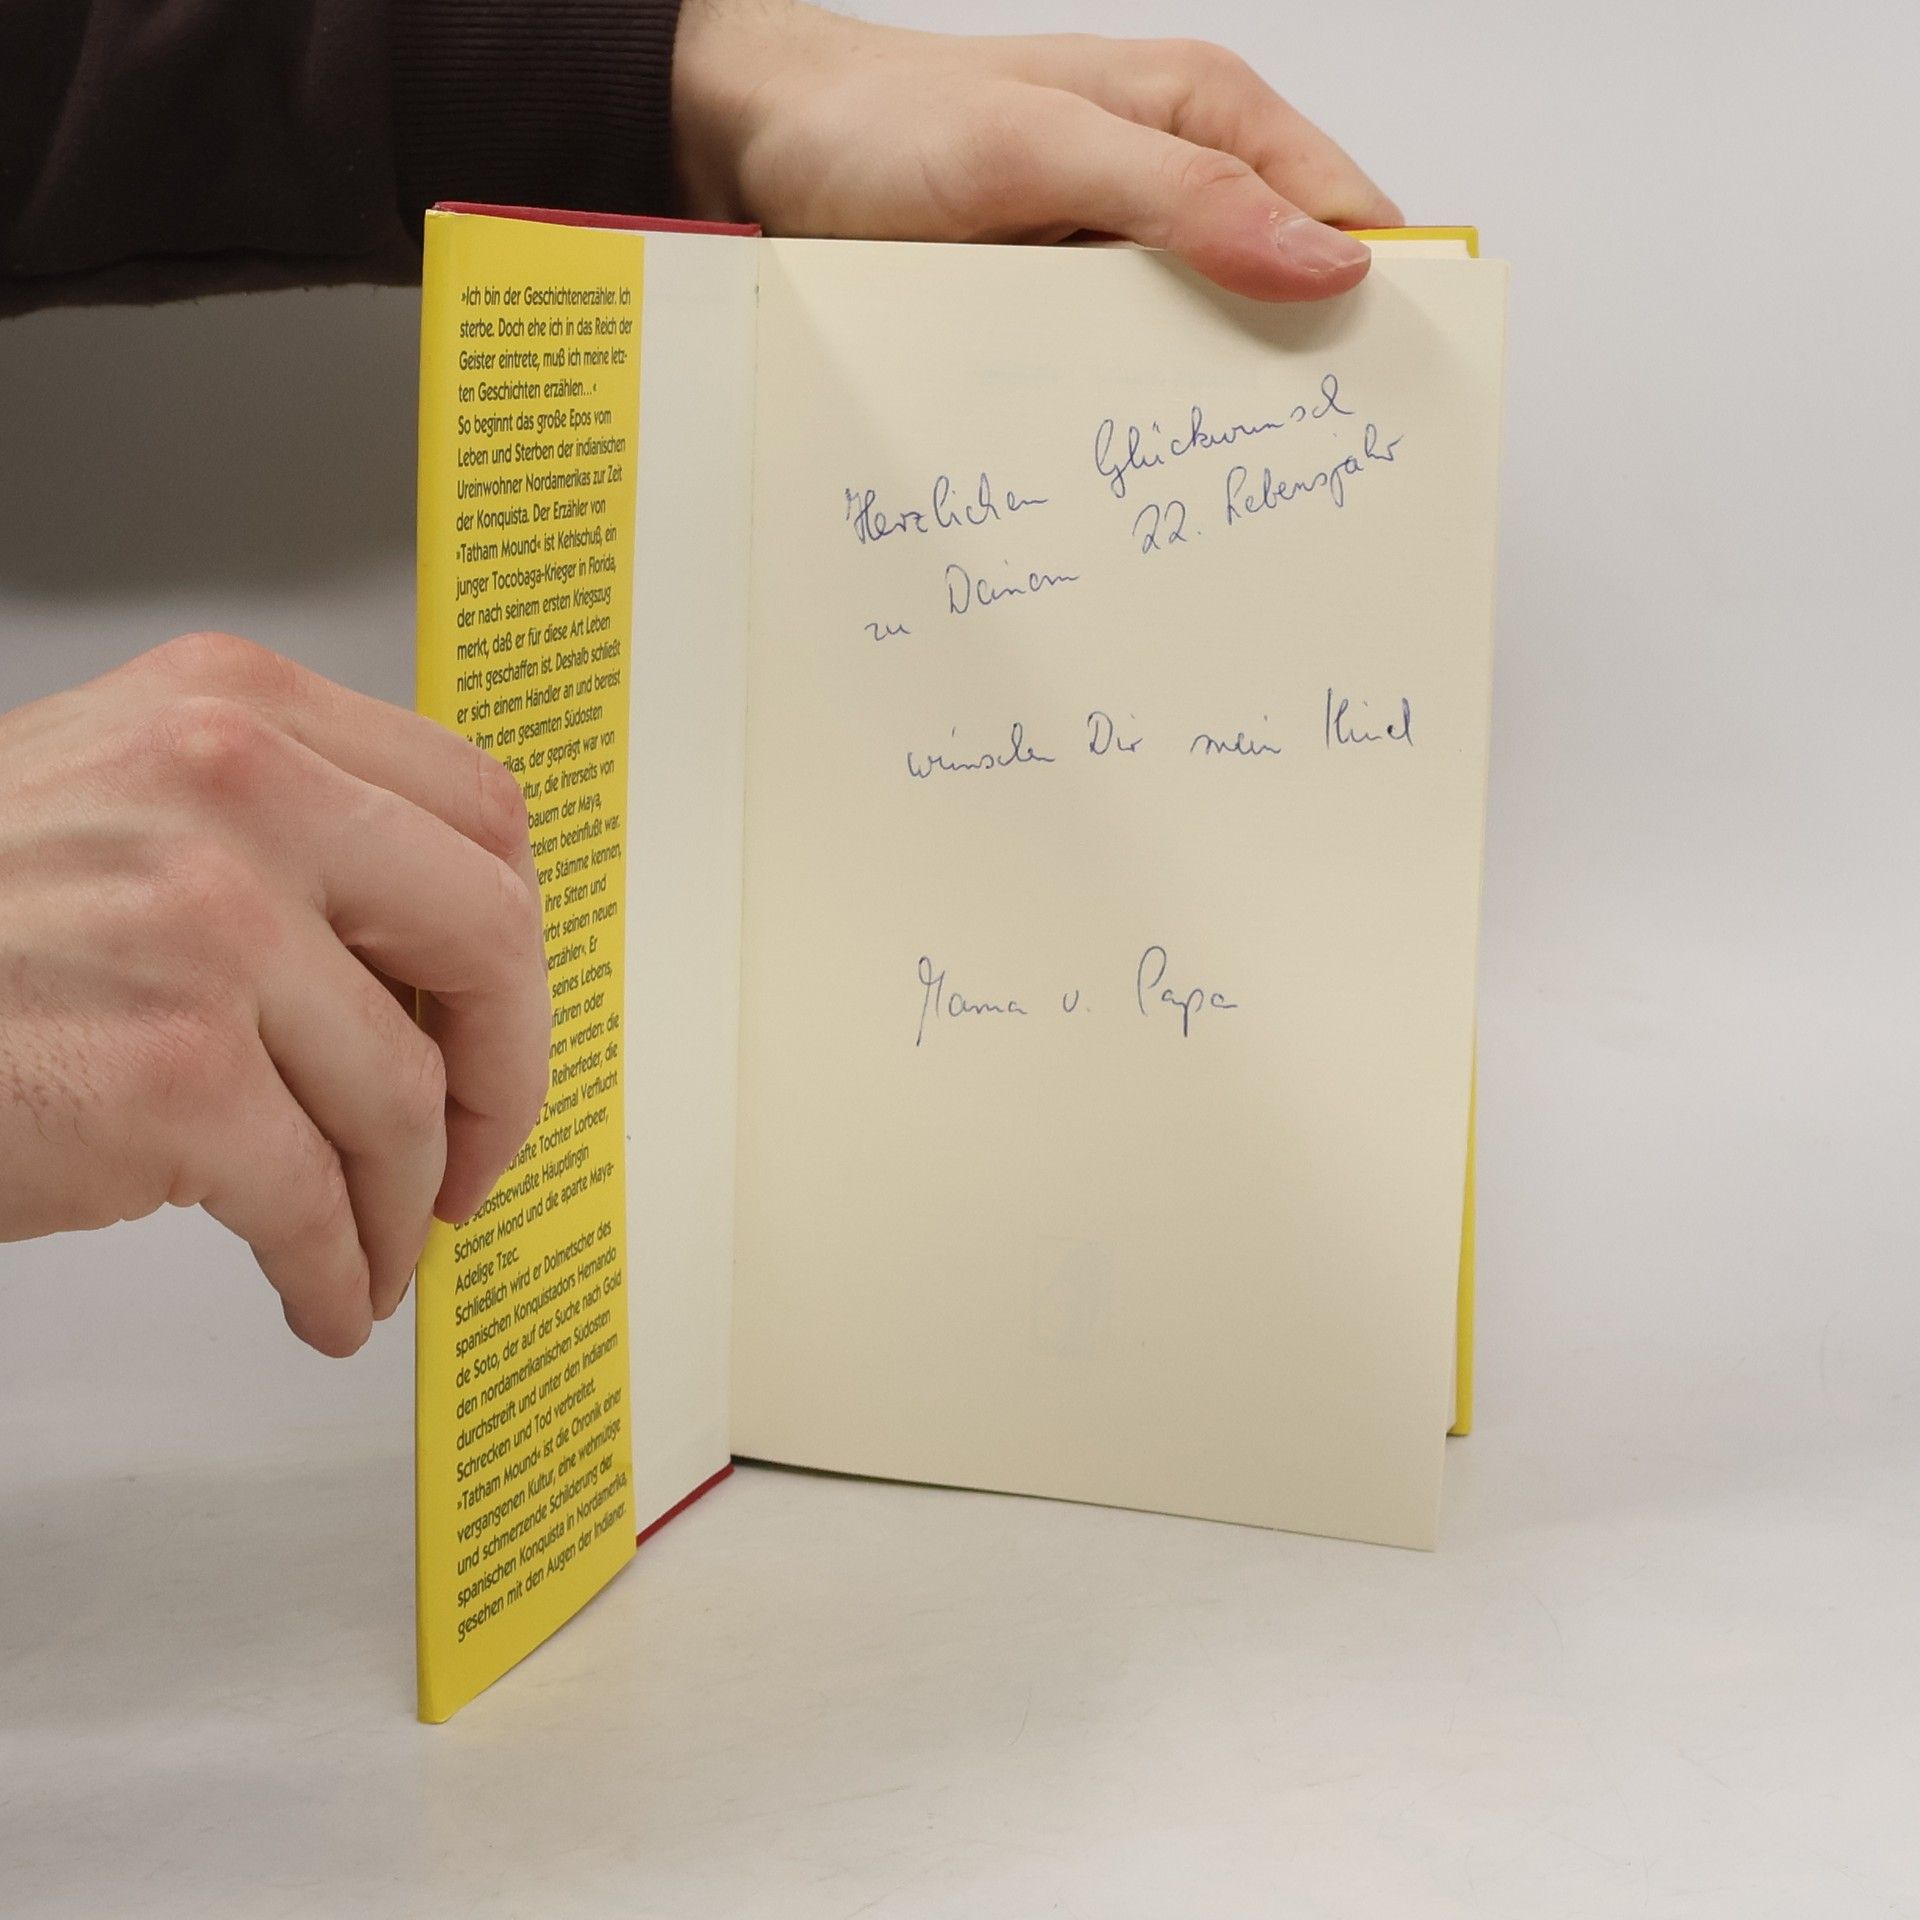 »Ich bin der Geschichtenerzähler. Ich
sterbe. Doch ehe ich in das Reich der
Geister eintrete, muß ich meine letz-
ten Geschichten erzählen...«
So beginnt das große Epos vom
Leben und Sterben der indianischen
Ureinwohner Nordamerikas zur Zeit
der Konquista. Der Erzähler von
»Tatham Mound« ist Kehlschuß, ein
junger Tocobaga-Krieger in Florida,
der nach seinem ersten Kriegszug
merkt, daß er für diese Art Leben
nicht geschaffen ist. Deshalb schließt
er sich einem Händler an und bereist
ihm den gesamten Südosten
rikas, der geprägt war von
ultur, die ihrerseits von
bauern der Maya,
teken beeinflußt war.
dere Stämme kennen,
ihre Sitten und
irbt seinen neuen
erzähler«. Er
seines Lebens,
führen oder
nen werden: die
Reiherfeder, die
Zweimal Verflucht
hafte Tochter Lorbeer,
selbstbewußte Häuptlingin
Schöner Mond und die aparte Maya-
Adelige Tzec.
Schließlich wird er Dolmetscher des
spanischen Konquistadors Hernando
de Soto, der auf der Suche nach Gold
den nordamerikanischen Südosten
durchstreift und unter den Indianern
Schrecken und Tod verbreitet.
»Tatham Mound« ist die Chronik einer
vergangenen Kultur, eine wehmütige
und schmerzende Schilderung der
spanischen Konquista in Nordamerika,
gesehen mit den Augen der Indianer.
Herzlichen Glückwunsch
zu Deinem 22. Lebensjahr
wünschen Dir mein Kind
Mama u. Papa